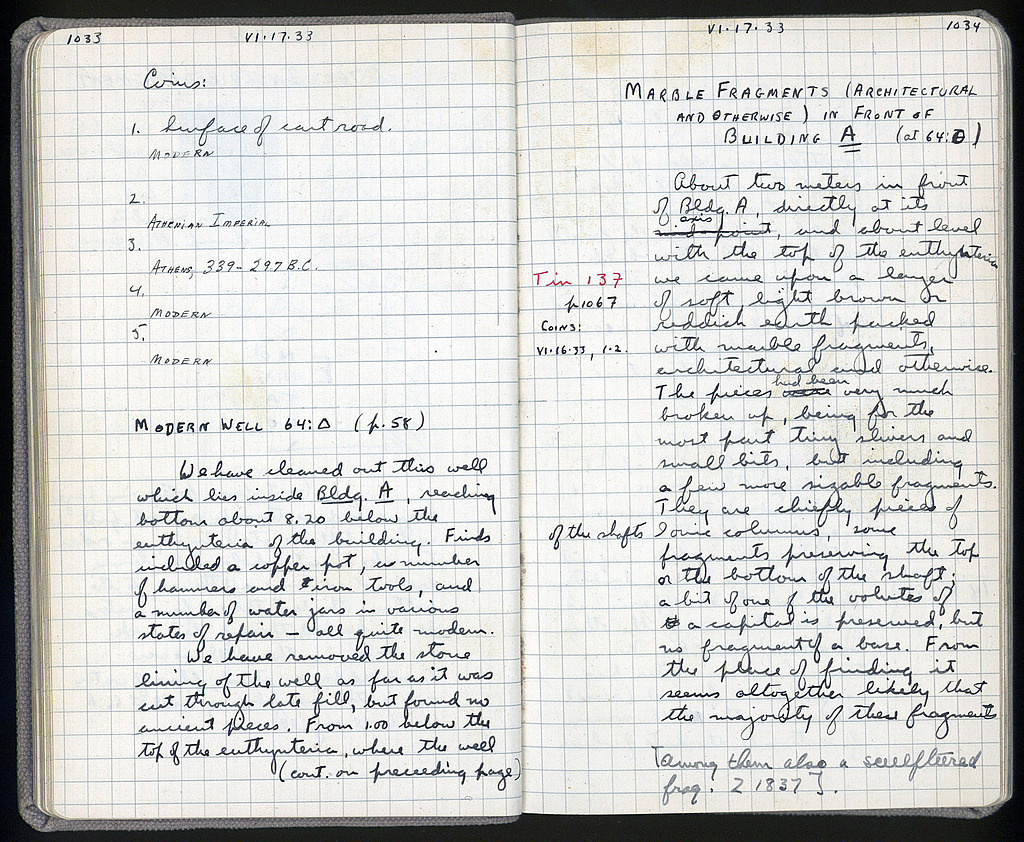 1033
VI·17·33
Coins:
1. Surface of cart road.
MODERN
2.
ATHENIAN IMPERIAL
3.
ATHENS, 339-297 B.C.
4.
MODERN
5.
MODERN
MODERN WELL 64:Δ (p. 58)
We have cleaned out this well
which lies inside Bldg. A, reaching
bottom about 8.20 below the
euthynteria of the building. Finds
included a copper pot, a number
of hammers and iron tools, and
a number of water jars in various
states of repair — all quite modern.
We have removed the stone
lining of the well as far as it was
cut through late fill, but found no
ancient pieces. From 1.00 below the
top of the euthynteria, where the well
(cont. on preceeding page)
VI·17·33
1034
MARBLE FRAGMENTS (ARCHITECTURAL
AND OTHERWISE) IN FRONT OF
BUILDING A (at 64:Θ)
About two meters in front
of Bldg. A, directly at its
axis
mid point, and about level
with the top of the euthynteria
we came upon a layer
of soft, light brown or
reddish earth packed
with marble fragments,
architectural and otherwise.
The pieces had been were very much
broken up, being for the
most part tiny slivers and
small bits, but including
a few more sizable fragments.
They are chiefly pieces of
of the shafts Ionic columns, some
fragments preserving the top
or the bottom of the shaft;
a bit of one of the volutes of
a capital is preserved, but
no fragment of a base. From
the place of finding it
seems altogether likely that
the majority of these fragments
[among them also a sculptured
frag. Σ 1837].
Tin 137
p 1067
COINS:
VI·16·33, 1-2.